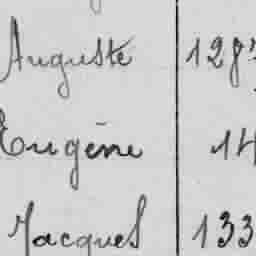 Auguste 128
Eugène 14
Jacques 133